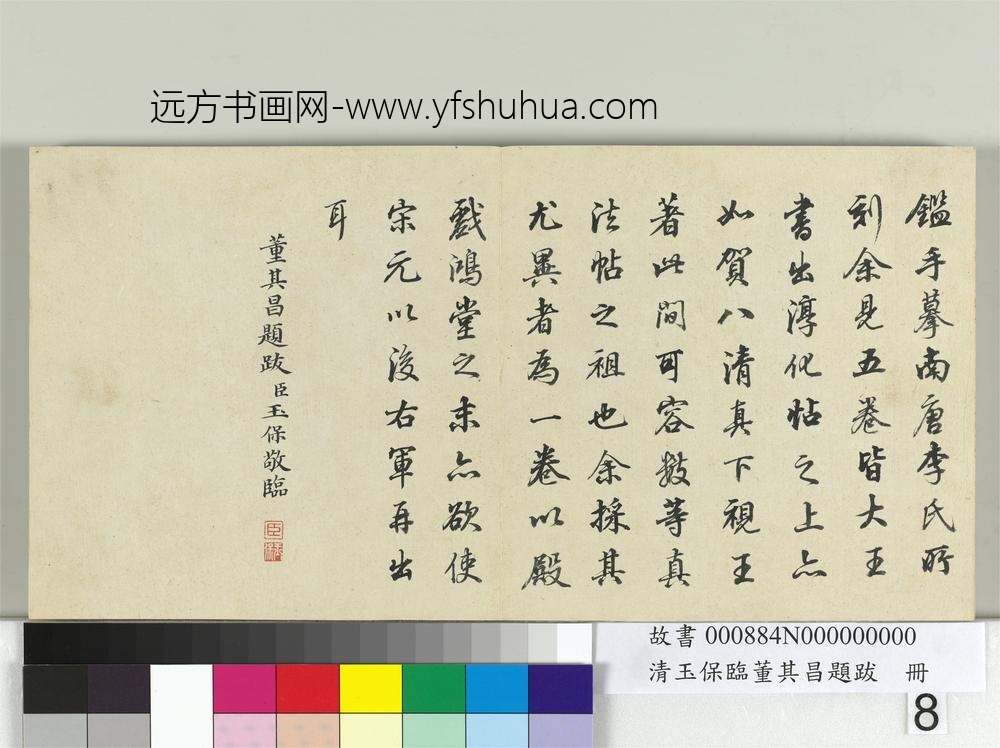 远方书画网-www.yfshuhua.com
鑑手摹南唐李氏所
刻余見五卷皆大王
書出淳化帖之上亦
如賀八清真下視王
著此間可容數等真
法帖之祖也余採其
尤異者為一卷以殿
戲鴻堂之末亦欲使
宋元以後右軍再出
耳
董其昌題跋臣玉保敬臨
故書 000884N000000000
清玉保臨董其昌題跋 冊
8